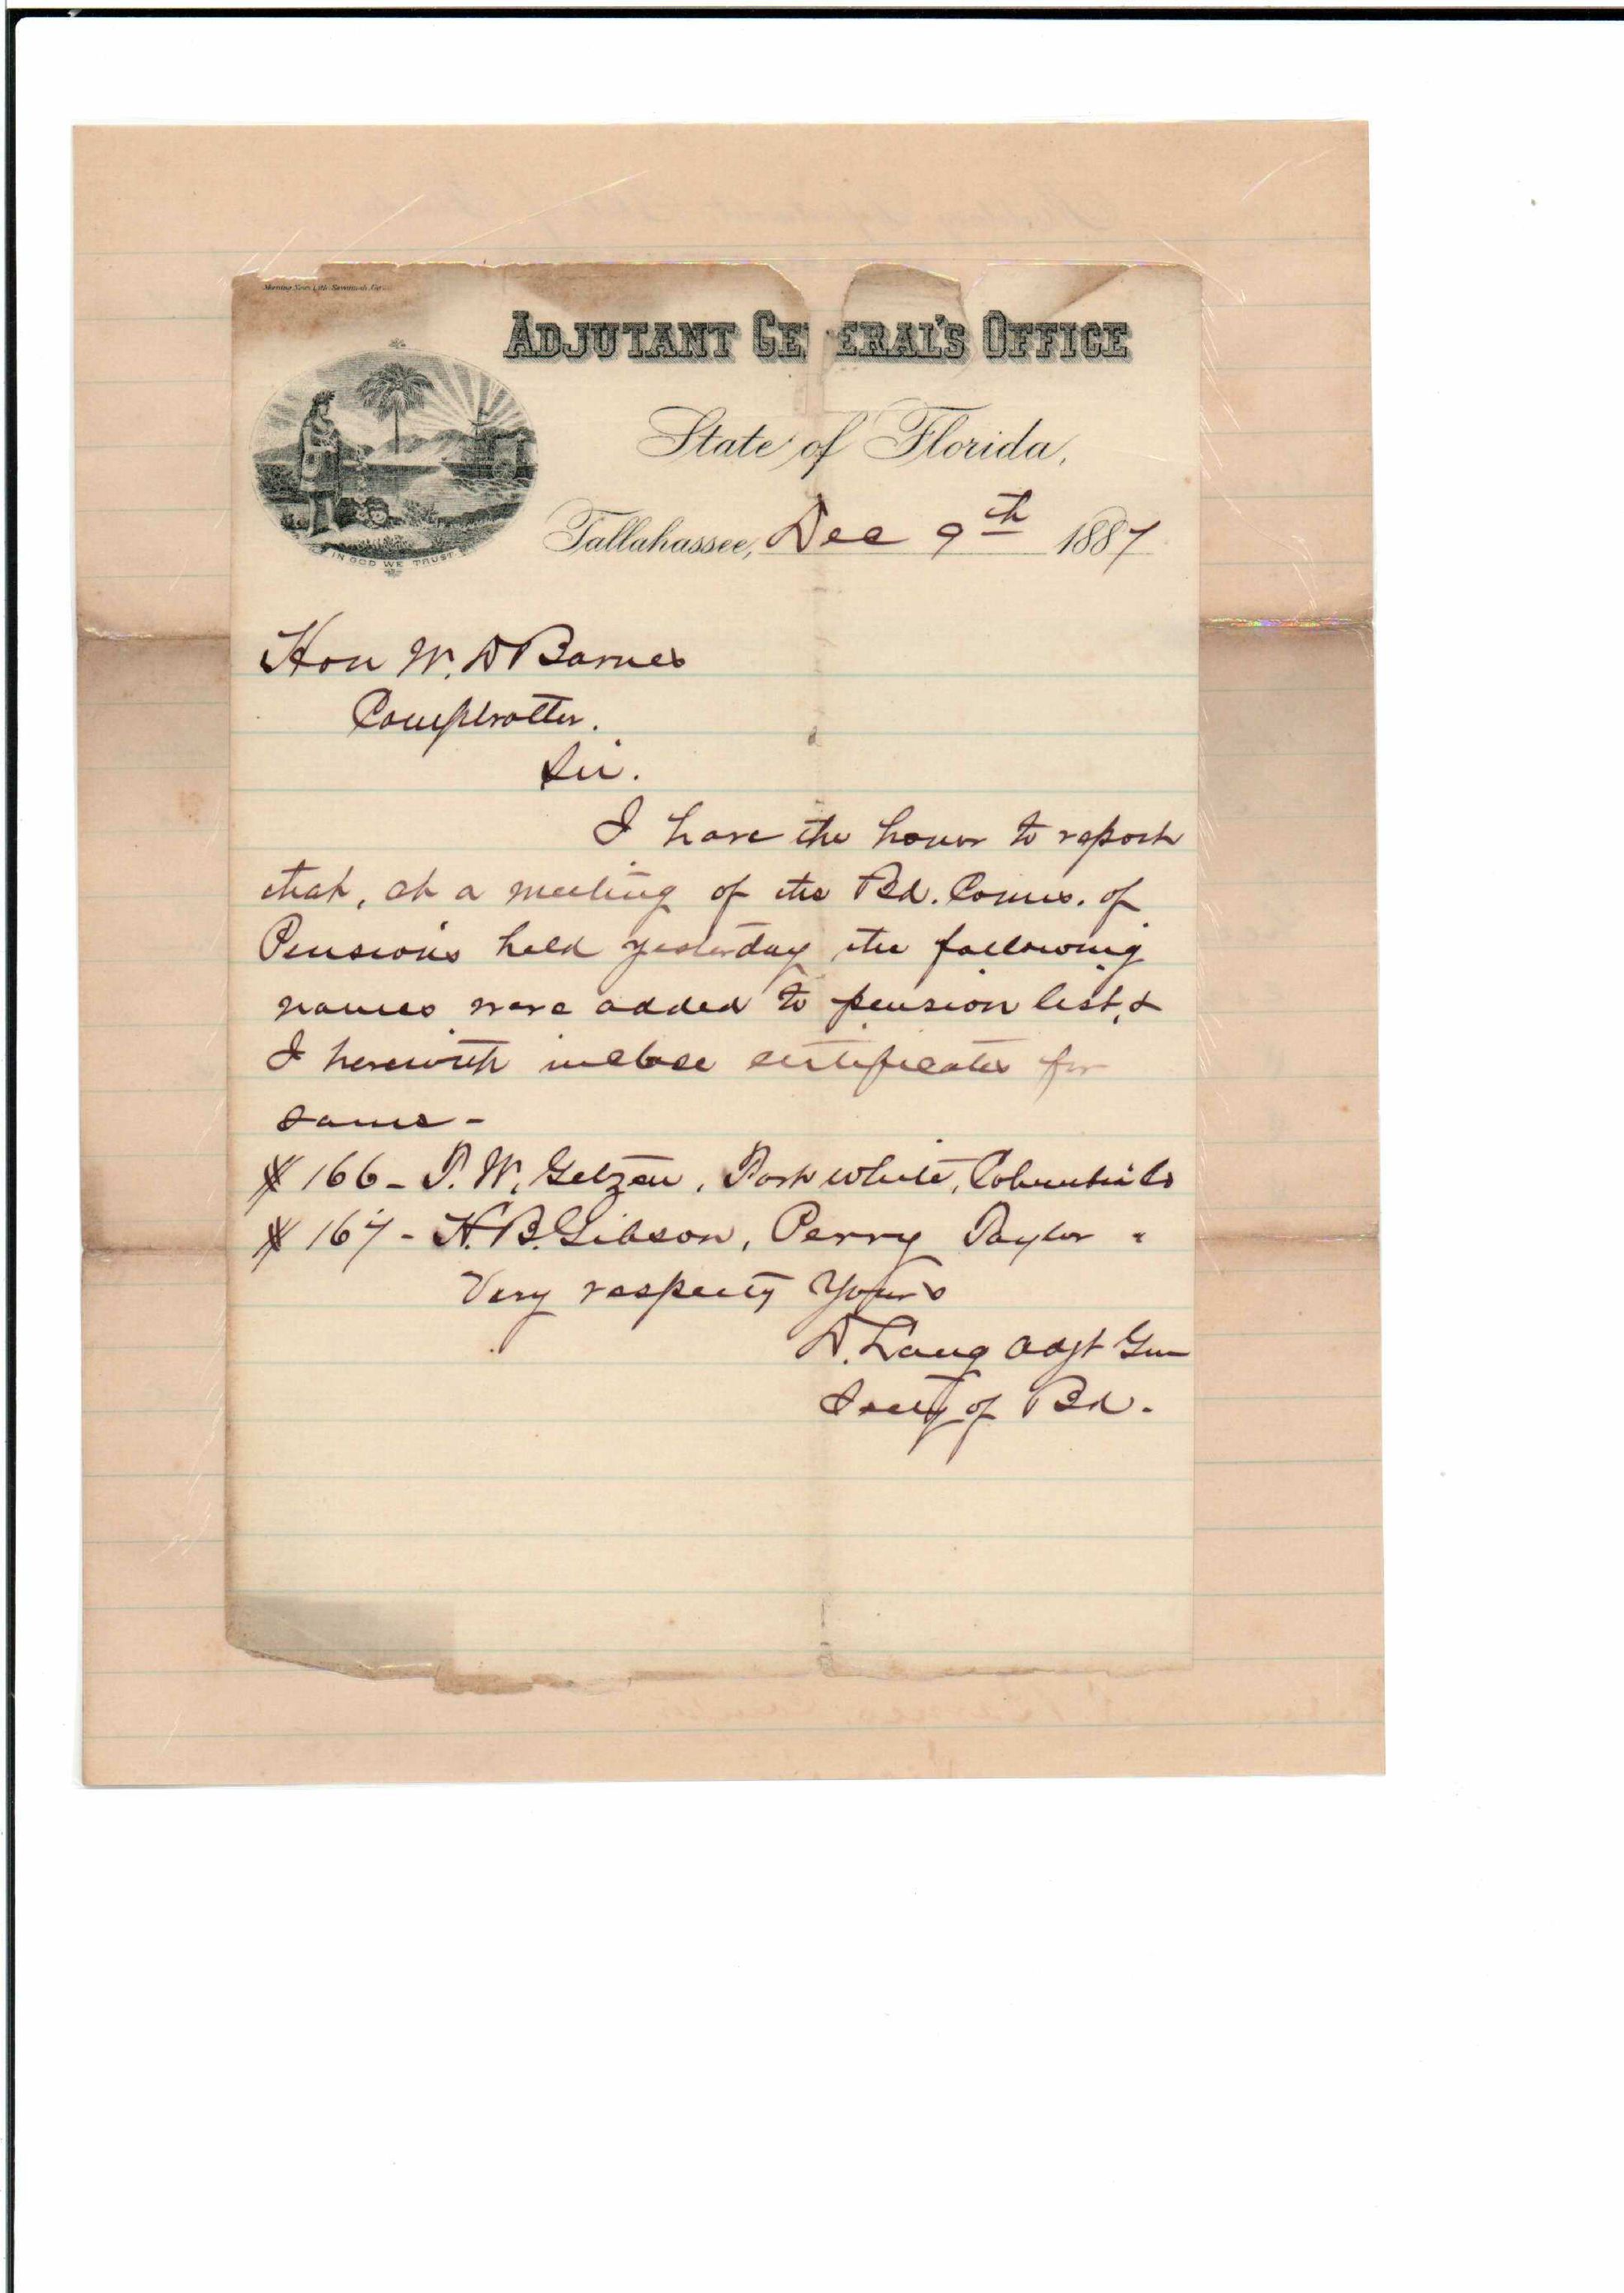 Morning News Lith. Savannah, Ga.
ADJUTANT GENERAL'S OFFICE
State of Florida,
Tallahassee, Dec 9th 1887
IN GOD WE TRUST
Hon W. D Barnes
Comptroller.
Sir.
I have the honor to report
that, at a meeting of the Bd. Comrs. of
Pensions held yesterday the following
names were added to pension list, &
I herewith inclose certificates for
same -
# 166 - T. W. Getzen, Fort White, Columbia Co
# 167 - H. B. Gibson, Perry Taylor "
Very respecty Yours
D. Lang Adjt Gen
Secty of Bd.